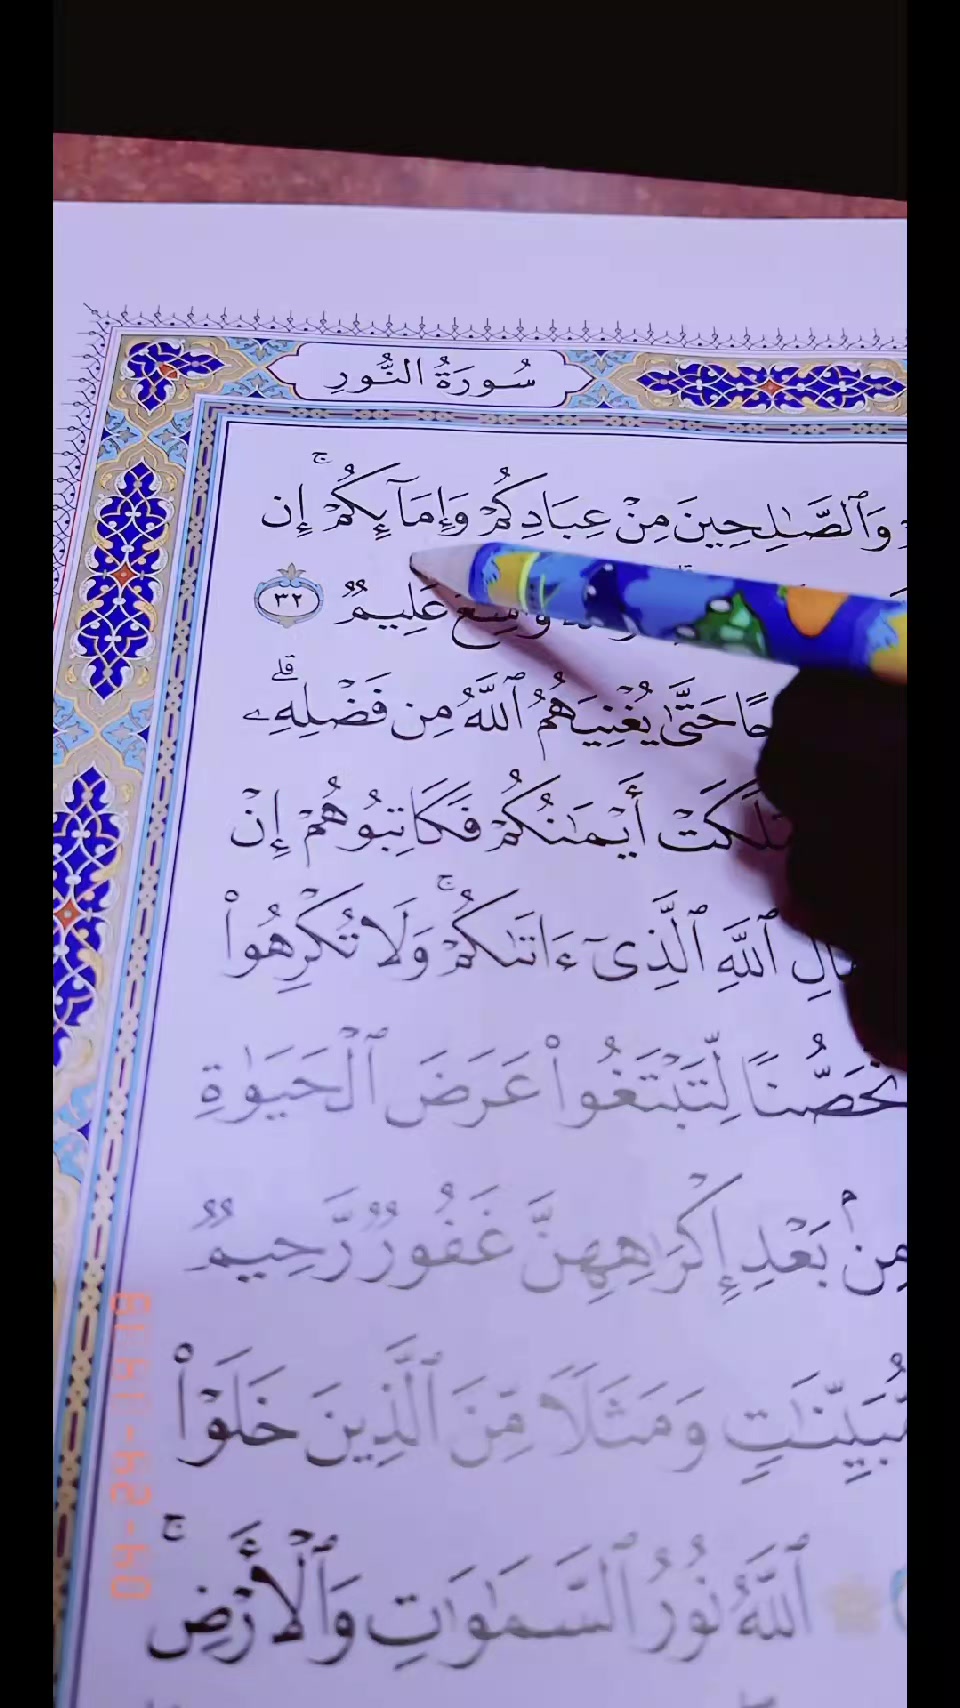 سُورَةُ النُّورِ
وَٱلصَّٰلِحِينَ مِنْ عِبَادِكُمْ وَإِمَآئِكُمْ ۚ إِن
وَٰسِعٌ عَلِيمٌ ٣٢
حًا حَتَّىٰ يُغْنِيَهُمُ ٱللَّهُ مِن فَضْلِهِۦ ۗ
مَلَكَتْ أَيْمَٰنُكُمْ فَكَاتِبُوهُمْ إِنْ
مَّالِ ٱللَّهِ ٱلَّذِىٓ ءَاتَىٰكُمْ ۚ وَلَا تُكْرِهُوا۟
تَحَصُّنًا لِّتَبْتَغُوا۟ عَرَضَ ٱلْحَيَوٰةِ
مِنۢ بَعْدِ إِكْرَٰهِهِنَّ غَفُورٌ رَّحِيمٌ
مُّبَيِّنَٰتٍ وَمَثَلًا مِّنَ ٱلَّذِينَ خَلَوْا۟
ٱللَّهُ نُورُ ٱلسَّمَٰوَٰتِ وَٱلْأَرْضِ ۚ